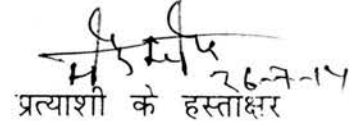 26-7-14
प्रत्याशी के हस्ताक्षर